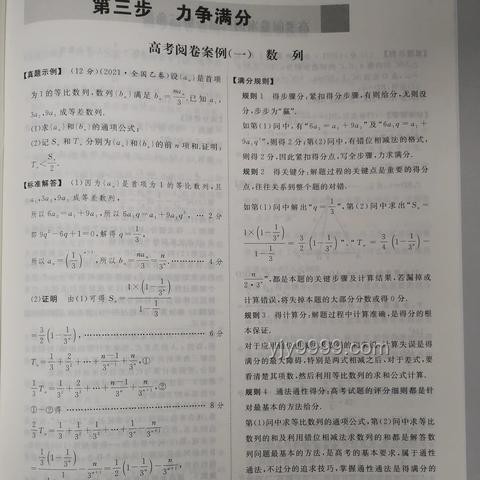 第三步 力争满分
高考阅卷案例(一) 数列
【真题示例】 (12分)(2021·全国乙卷)设{aₙ}是首项
为1的等比数列,数列{bₙ}满足bₙ=naₙ/3.已知a₁,
3a₂,9a₃成等差数列.
(1)求{aₙ}和{bₙ}的通项公式;
(2)记Sₙ和Tₙ分别为{aₙ}和{bₙ}的前n项和.证明:
Tₙ<Sₙ/2.
【标准解答】 (1)因为{aₙ}是首项为1的等比数列,且
a₁,3a₂,9a₃成等差数列,
所以6a₂=a₁+9a₃,所以6a₁q=a₁+9a₁q², … 2分
即9q²-6q+1=0,解得q=1/3,
所以aₙ=(1/3)ⁿ⁻¹,所以bₙ=naₙ/3=n/3ⁿ. 4分
(2)证明 由(1)可得Sₙ=1×(1-1/3ⁿ)/(1-1/3)
=3/2(1-1/3ⁿ), 6分
Tₙ=1/3+2/3²+…+(n-1)/3ⁿ⁻¹+n/3ⁿ,①
1/3Tₙ=1/3²+2/3³+…+(n-1)/3ⁿ+n/3ⁿ⁺¹,②
①-②得 8分
2/3Tₙ=1/3+1/3²+1/3³+…+1/3ⁿ-n/3ⁿ⁺¹
【满分规则】
规则1 得步骤分,紧扣得分步骤,有则给分,无则没
分,步步为“赢”.
如第(1)问中,有“6a₂=a₁+9a₃”及“6a₁q=a₁+
9a₁q²”,则得2分;第(2)问中,有错位相减法的格式,
则得2分,因此紧扣得分点,写全步骤,力求满分.
规则2 得关键分:解题过程的关键点是重要的得分
点,往往关系到整个题的对错.
如第(1)问中解出“q=1/3”,第(2)问中求出“Sₙ=
1×(1-1/3ⁿ)/(1-1/3)=3/2(1-1/3ⁿ)”、“Tₙ=3/4(1-1/3ⁿ)-
n/(2·3ⁿ)”,都是本题的关键步骤及计算结果,若漏掉或
计算错误,将失掉本题的大部分分数或得0分.
规则3 得计算分:解题过程中计算准确,是得分的根
本保证.
的最大障碍,特别是两式相减之后,对于差式,要
看清楚其项数,然后利用等比数列的求和公式计算.
规则4 通法通性得分:高考试题的评分细则都是针
对最基本的方法给分.
第(1)问中求等比数列的通项公式,第(2)问中求等比
数列的和及利用错位相减法求数列的和都是解答数
列问题最基本的方法,是高考的基本要求,属于通性
通法,不过分的追求技巧,掌握通性通法是得满分的